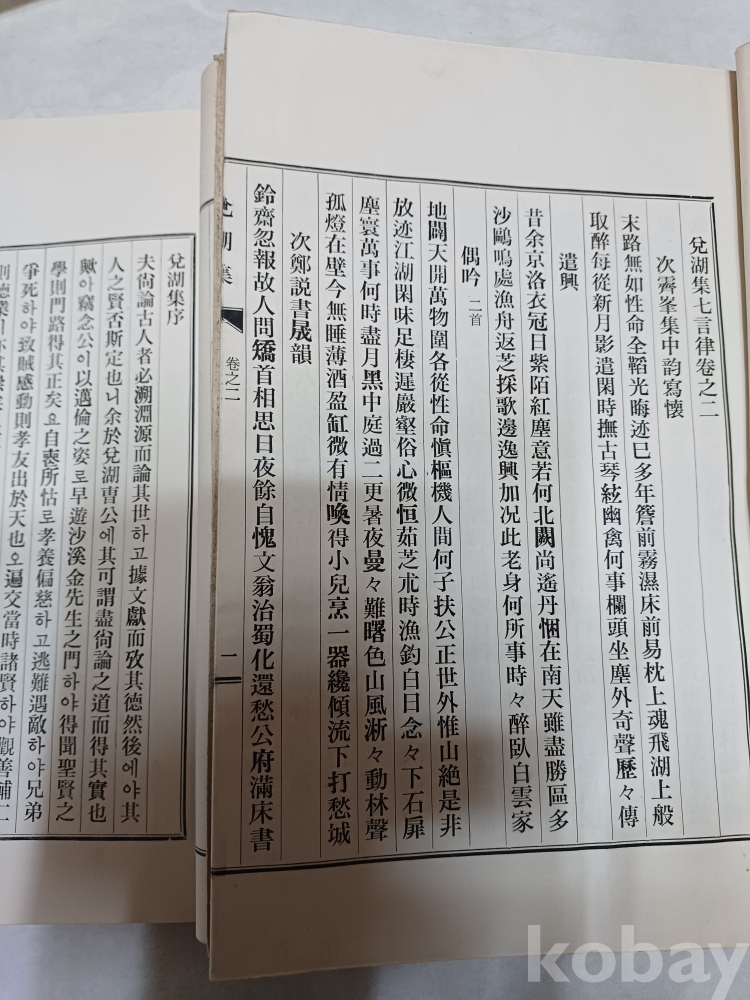 兌湖集七言律卷之二
次霽峯集中韵寫懷
末路無如性命全韜光晦迹已多年簷前霧濕床前易枕上魂飛湖上般
取醉每從新月影遣閑時撫古琴絃幽禽何事欄頭坐塵外奇聲歷々傳
遣興
昔余京洛衣冠日紫陌紅塵意若何北闕尚遙丹悃在南天雖盡勝區多
沙鷗鳴處漁舟返芝採歌邊逸興加况此老身何所事時々醉臥白雲家
偶吟 二首
地闢天開萬物圍各從性命愼樞機人間何子扶公正世外惟山絶是非
放迹江湖閑味足棲遲嚴壑俗心微恒茹芝朮時漁釣白日念々下石扉
塵寰萬事何時盡月黑中庭過二更暑夜曼々難曙色山風淅々動林聲
孤燈在壁今無睡薄酒盈缸微有情喚得小兒烹一器纔傾流下打愁城
次鄭説書晟韻
鈴齋忽報故人問矯首相思日夜餘自愧文翁治蜀化還愁公府滿床書
兌湖集 卷之二 一
兌湖集序
夫尙論古人者必溯淵源而論其世하고據文獻而攷其德然後에야其
人之賢否斯定也니余於兌湖曺公에其可謂盡尙論之道而得其實也
歟아竊念公이以邁倫之姿로早遊沙溪金先生之門하야得聞聖賢之
學則門路得其正矣요自喪所怙로孝養偏慈하고逃難遇敵하야兄弟
爭死하야致賊感動則孝友出於天也오遍交當時諸賢하야觀善輔仁
kobay